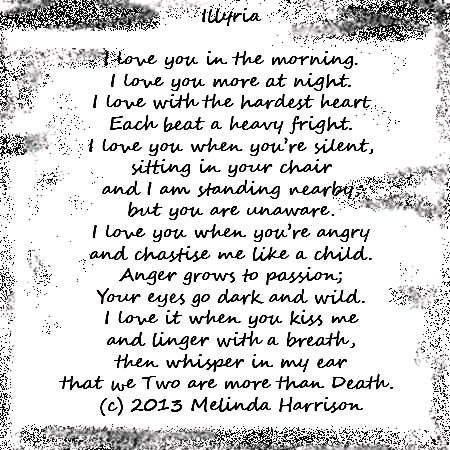 Illyria
I love you in the morning.
I love you more at night.
I love with the hardest heart
Each beat a heavy fright.
I love you when you're silent,
sitting in your chair
and I am standing nearby,
but you are unaware.
I love you when you're angry
and chastise me like a child.
Anger grows to passion;
Your eyes go dark and wild.
I love it when you kiss me
and linger with a breath,
then whisper in my ear
that we Two are more than Death.
(c) 2013 Melinda Harrison